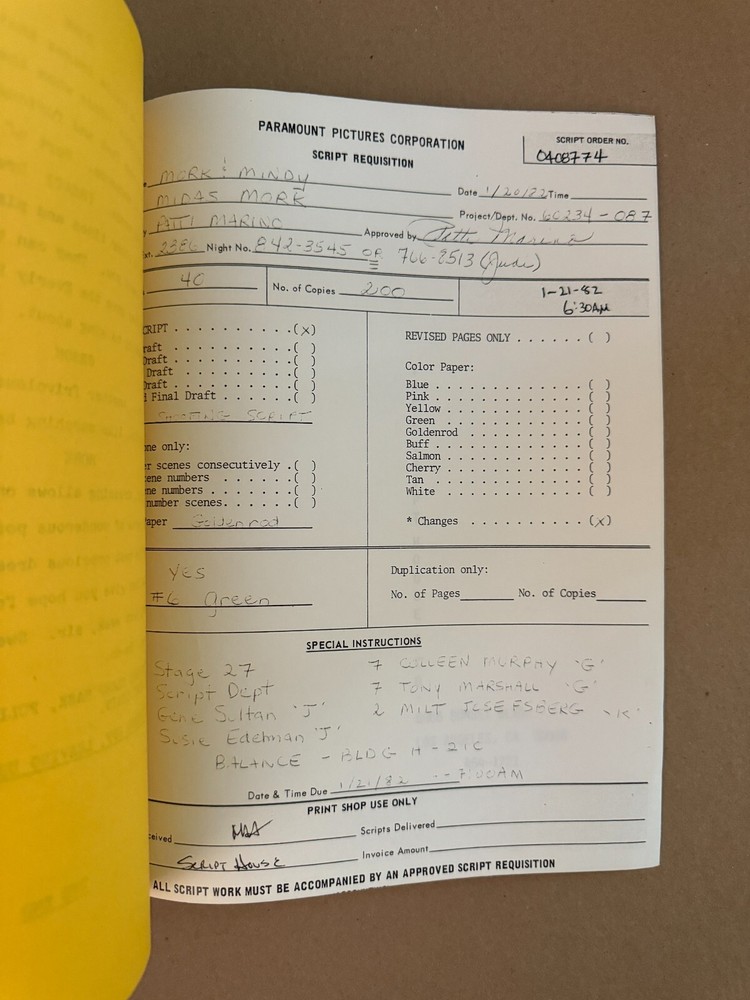 PARAMOUNT PICTURES CORPORATION
SCRIPT REQUISITION
SCRIPT ORDER NO.
0408774
MORK & MINDY
Date 1/20/82 Time
MIDAS MORK
Project/Dept. No. 60234-087
PATTI MARINO
Approved by Patti Marino
2386 Night No. 842-3545 OR 766-8513 (Jude)
40 No. of Copies 200
1-21-82
6:30AM
CRIPT . . . . . . . . . .(X)
raft . . . . . . . . . . .( )
Draft . . . . . . . . . . .( )
Draft . . . . . . . . . . .( )
Draft . . . . . . . . . . .( )
Final Draft . . . . . . .( )
SHOOTING SCRIPT
ne only:
r scenes consecutively .( )
ene numbers . . . . . . .( )
ne numbers . . . . . . . .( )
number scenes. . . . . . .( )
aper Goldenrod
REVISED PAGES ONLY . . . . . . ( )
Color Paper:
Blue . . . . . . . . . . . . . ( )
Pink . . . . . . . . . . . . . ( )
Yellow . . . . . . . . . . . . ( )
Green . . . . . . . . . . . . ( )
Goldenrod . . . . . . . . . . ( )
Buff . . . . . . . . . . . . . ( )
Salmon . . . . . . . . . . . . ( )
Cherry . . . . . . . . . . . . ( )
Tan . . . . . . . . . . . . . ( )
White . . . . . . . . . . . . ( )
* Changes . . . . . . . . . . (X)
YES
#6 Green
Duplication only:
No. of Pages No. of Copies
SPECIAL INSTRUCTIONS
Stage 27 7 COLLEEN MURPHY 'G'
Script Dept 7 TONY MARSHALL 'G'
Gene Sultan 'J' 2 MILT JOSEFSBERG 'K'
Susie Edelman 'J'
BALANCE - BLDG H - 21C
Date & Time Due 1/21/82 -- 7:00AM
PRINT SHOP USE ONLY
eived Scripts Delivered
SCRIPT HOUSE Invoice Amount
ALL SCRIPT WORK MUST BE ACCOMPANIED BY AN APPROVED SCRIPT REQUISITION